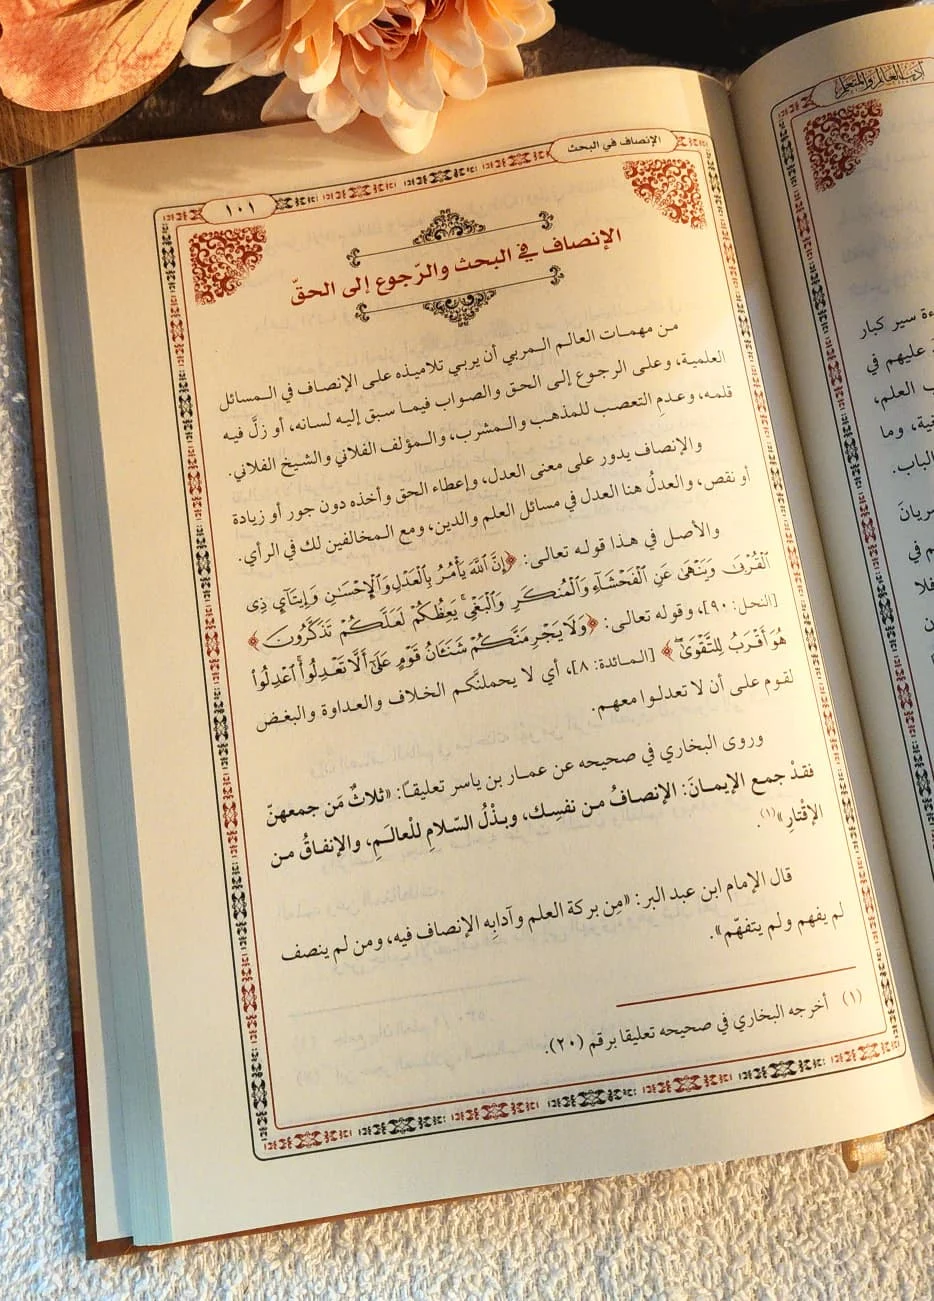 الإنصاف في البحث
١٠١
الإنصاف في البحث والرّجوع إلى الحقّ
من مهمات العالم المربي أن يربي تلاميذه على الإنصاف في المسائل
العلمية، وعلى الرجوع إلى الحق والصواب فيما سبق إليه لسانه، أو زلَّ فيه
قلمه، وعدم التعصب للمذهب والمشرب، والمؤلف الفلاني والشيخ الفلاني.
والإنصاف يدور على معنى العدل، وإعطاء الحق وأخذه دون جور أو زيادة
أو نقص، والعدلُ هنا العدل في مسائل العلم والدين، ومع المخالفين لك في الرأي.
والأصل في هذا قوله تعالى: ﴿إِنَّ ٱللَّهَ يَأْمُرُ بِٱلْعَدْلِ وَٱلْإِحْسَٰنِ وَإِيتَآئِ ذِى
ٱلْقُرْبَىٰ وَيَنْهَىٰ عَنِ ٱلْفَحْشَآءِ وَٱلْمُنكَرِ وَٱلْبَغْىِ ۚ يَعِظُكُمْ لَعَلَّكُمْ تَذَكَّرُونَ﴾
[النحل: ٩٠]، وقوله تعالى: ﴿وَلَا يَجْرِمَنَّكُمْ شَنَـَٔانُ قَوْمٍ عَلَىٰٓ أَلَّا تَعْدِلُوا۟ ۚ ٱعْدِلُوا۟
هُوَ أَقْرَبُ لِلتَّقْوَىٰ ۖ﴾ [المائدة: ٨]، أي لا يحملنَّكم الخلاف والعداوة والبغض
لقوم على أن لا تعدلوا معهم.
وروى البخاري في صحيحه عن عمار بن ياسر تعليقًا: «ثلاثٌ مَن جمعهنّ
فقدْ جمع الإيمانَ: الإنصافُ من نفسِك، وبذْلُ السّلامِ للْعالَمِ، والإنفاقُ من
الإقْتارِ»(١).
قال الإمام ابن عبد البر: «مِن بركة العلم وآدابِه الإنصاف فيه، ومن لم ينصف
لم يفهم ولم يتفهّم».
(١) أخرجه البخاري في صحيحه تعليقا برقم (٢٠).
أدب العالم والمتعلم
ءة سير كبار
عليهم في
ب العلم،
وما
الباب.
سريانَ
م في
فلا